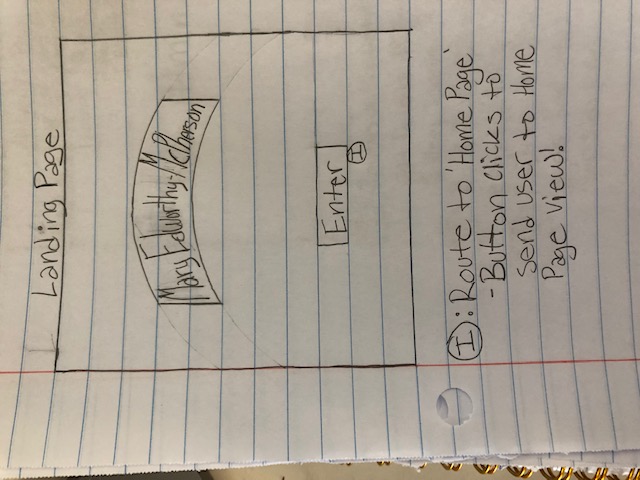 Landing Page
Mary Edworthy-McPherson
Enter
I
I: Route to 'Home Page'
- Button clicks to
send user to Home
Page view!